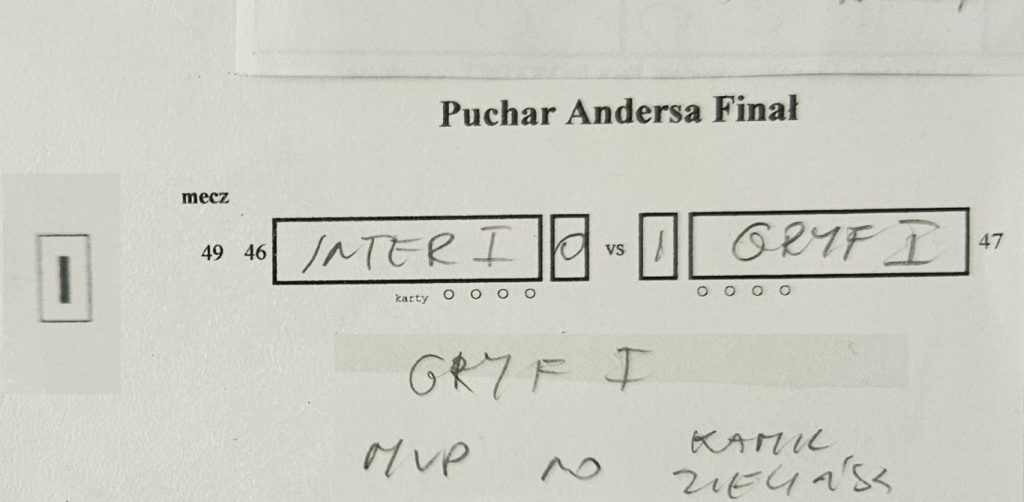 Puchar Andersa Finał
mecz
49 46 INTER I 0 vs 1 GRYF I 47
karty
I
GRYF I
MVP NO KAMIL